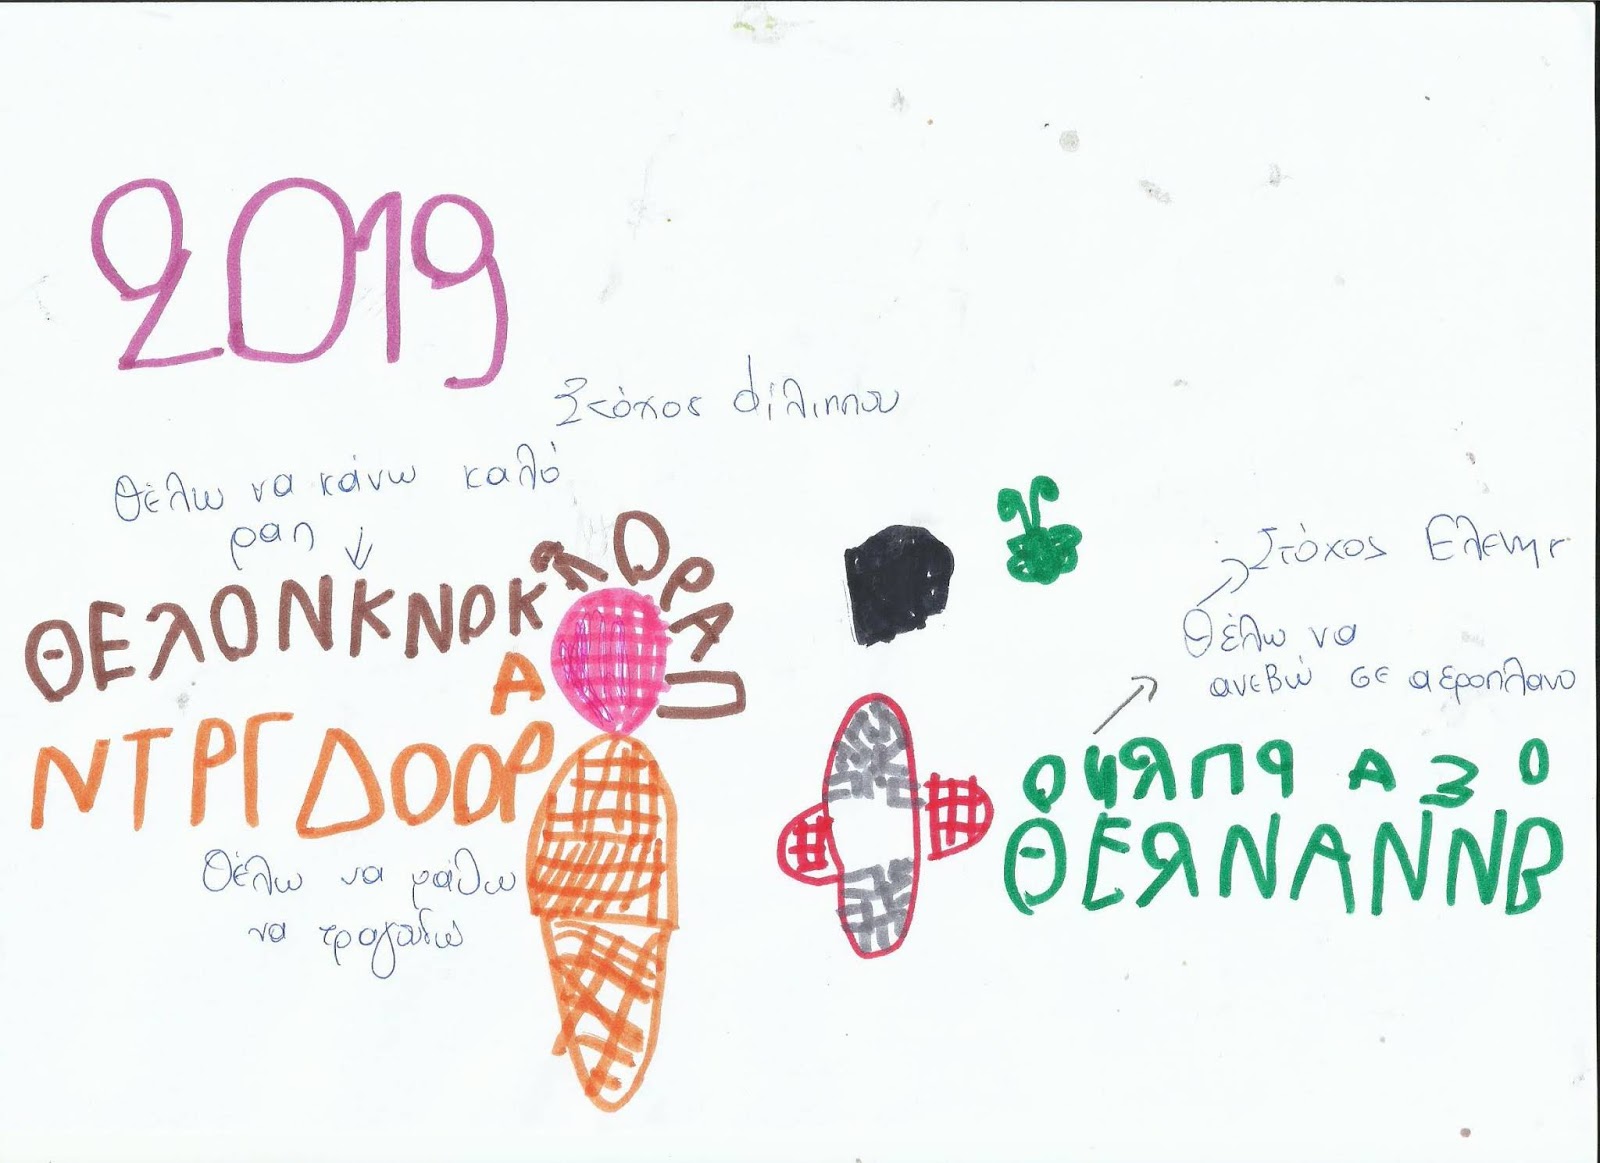 2019
Στόχος Φίλιππου
Θέλω να κάνω καλό
ραπ
ΘΕΛΟΝΚΝΟΚΛΟΡΑΠ
Α
ΝΤΡΓΔΟΟΡ
Θέλω να μάθω
να τραγουδώ
Στόχος Ελένης
Θέλω να
ανεβώ σε αεροπλάνο
ΘΕЯΝΑΝΝΒ